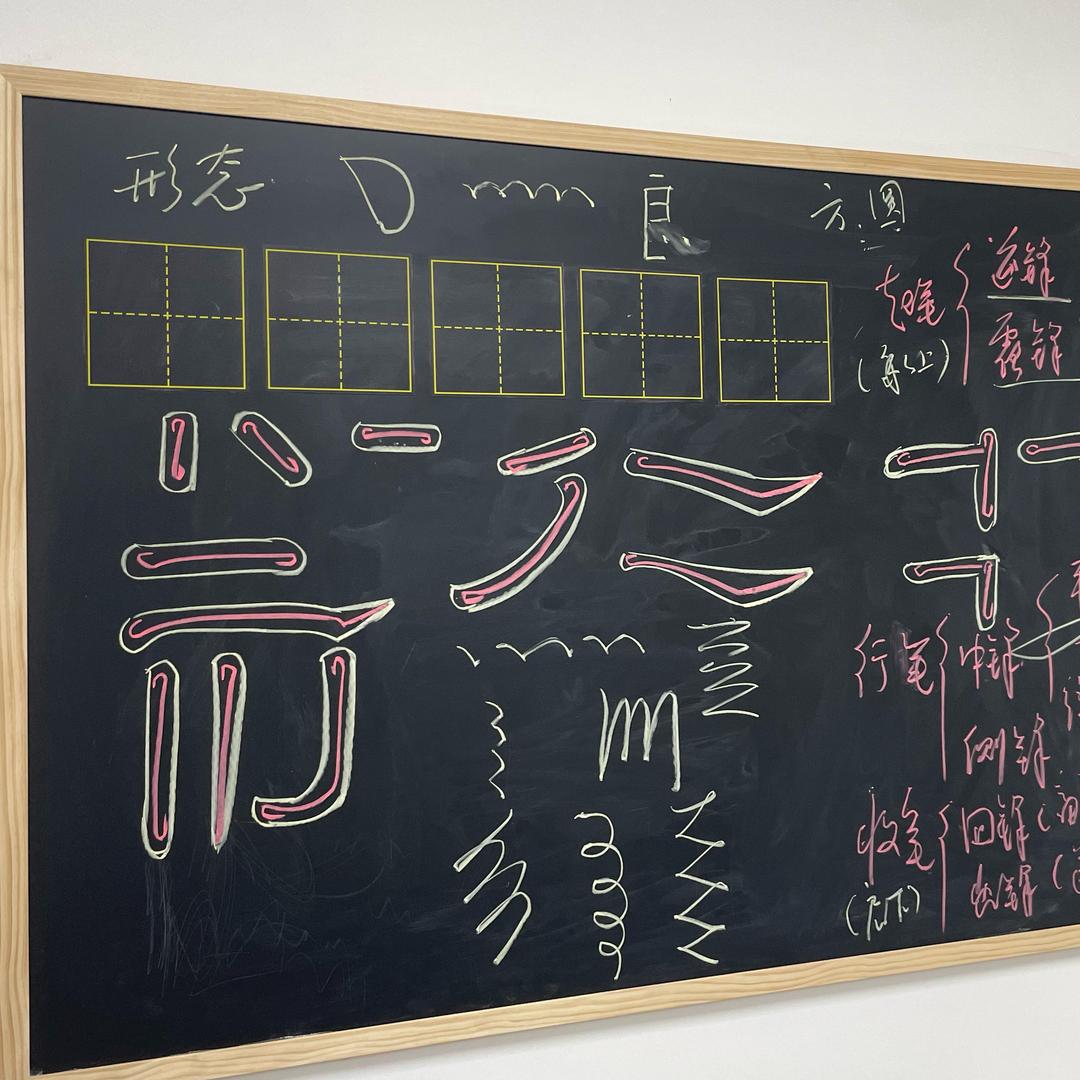 形态 方.圆
起笔 逆锋
露锋
行笔 中锋
侧锋
收笔 回锋
出锋